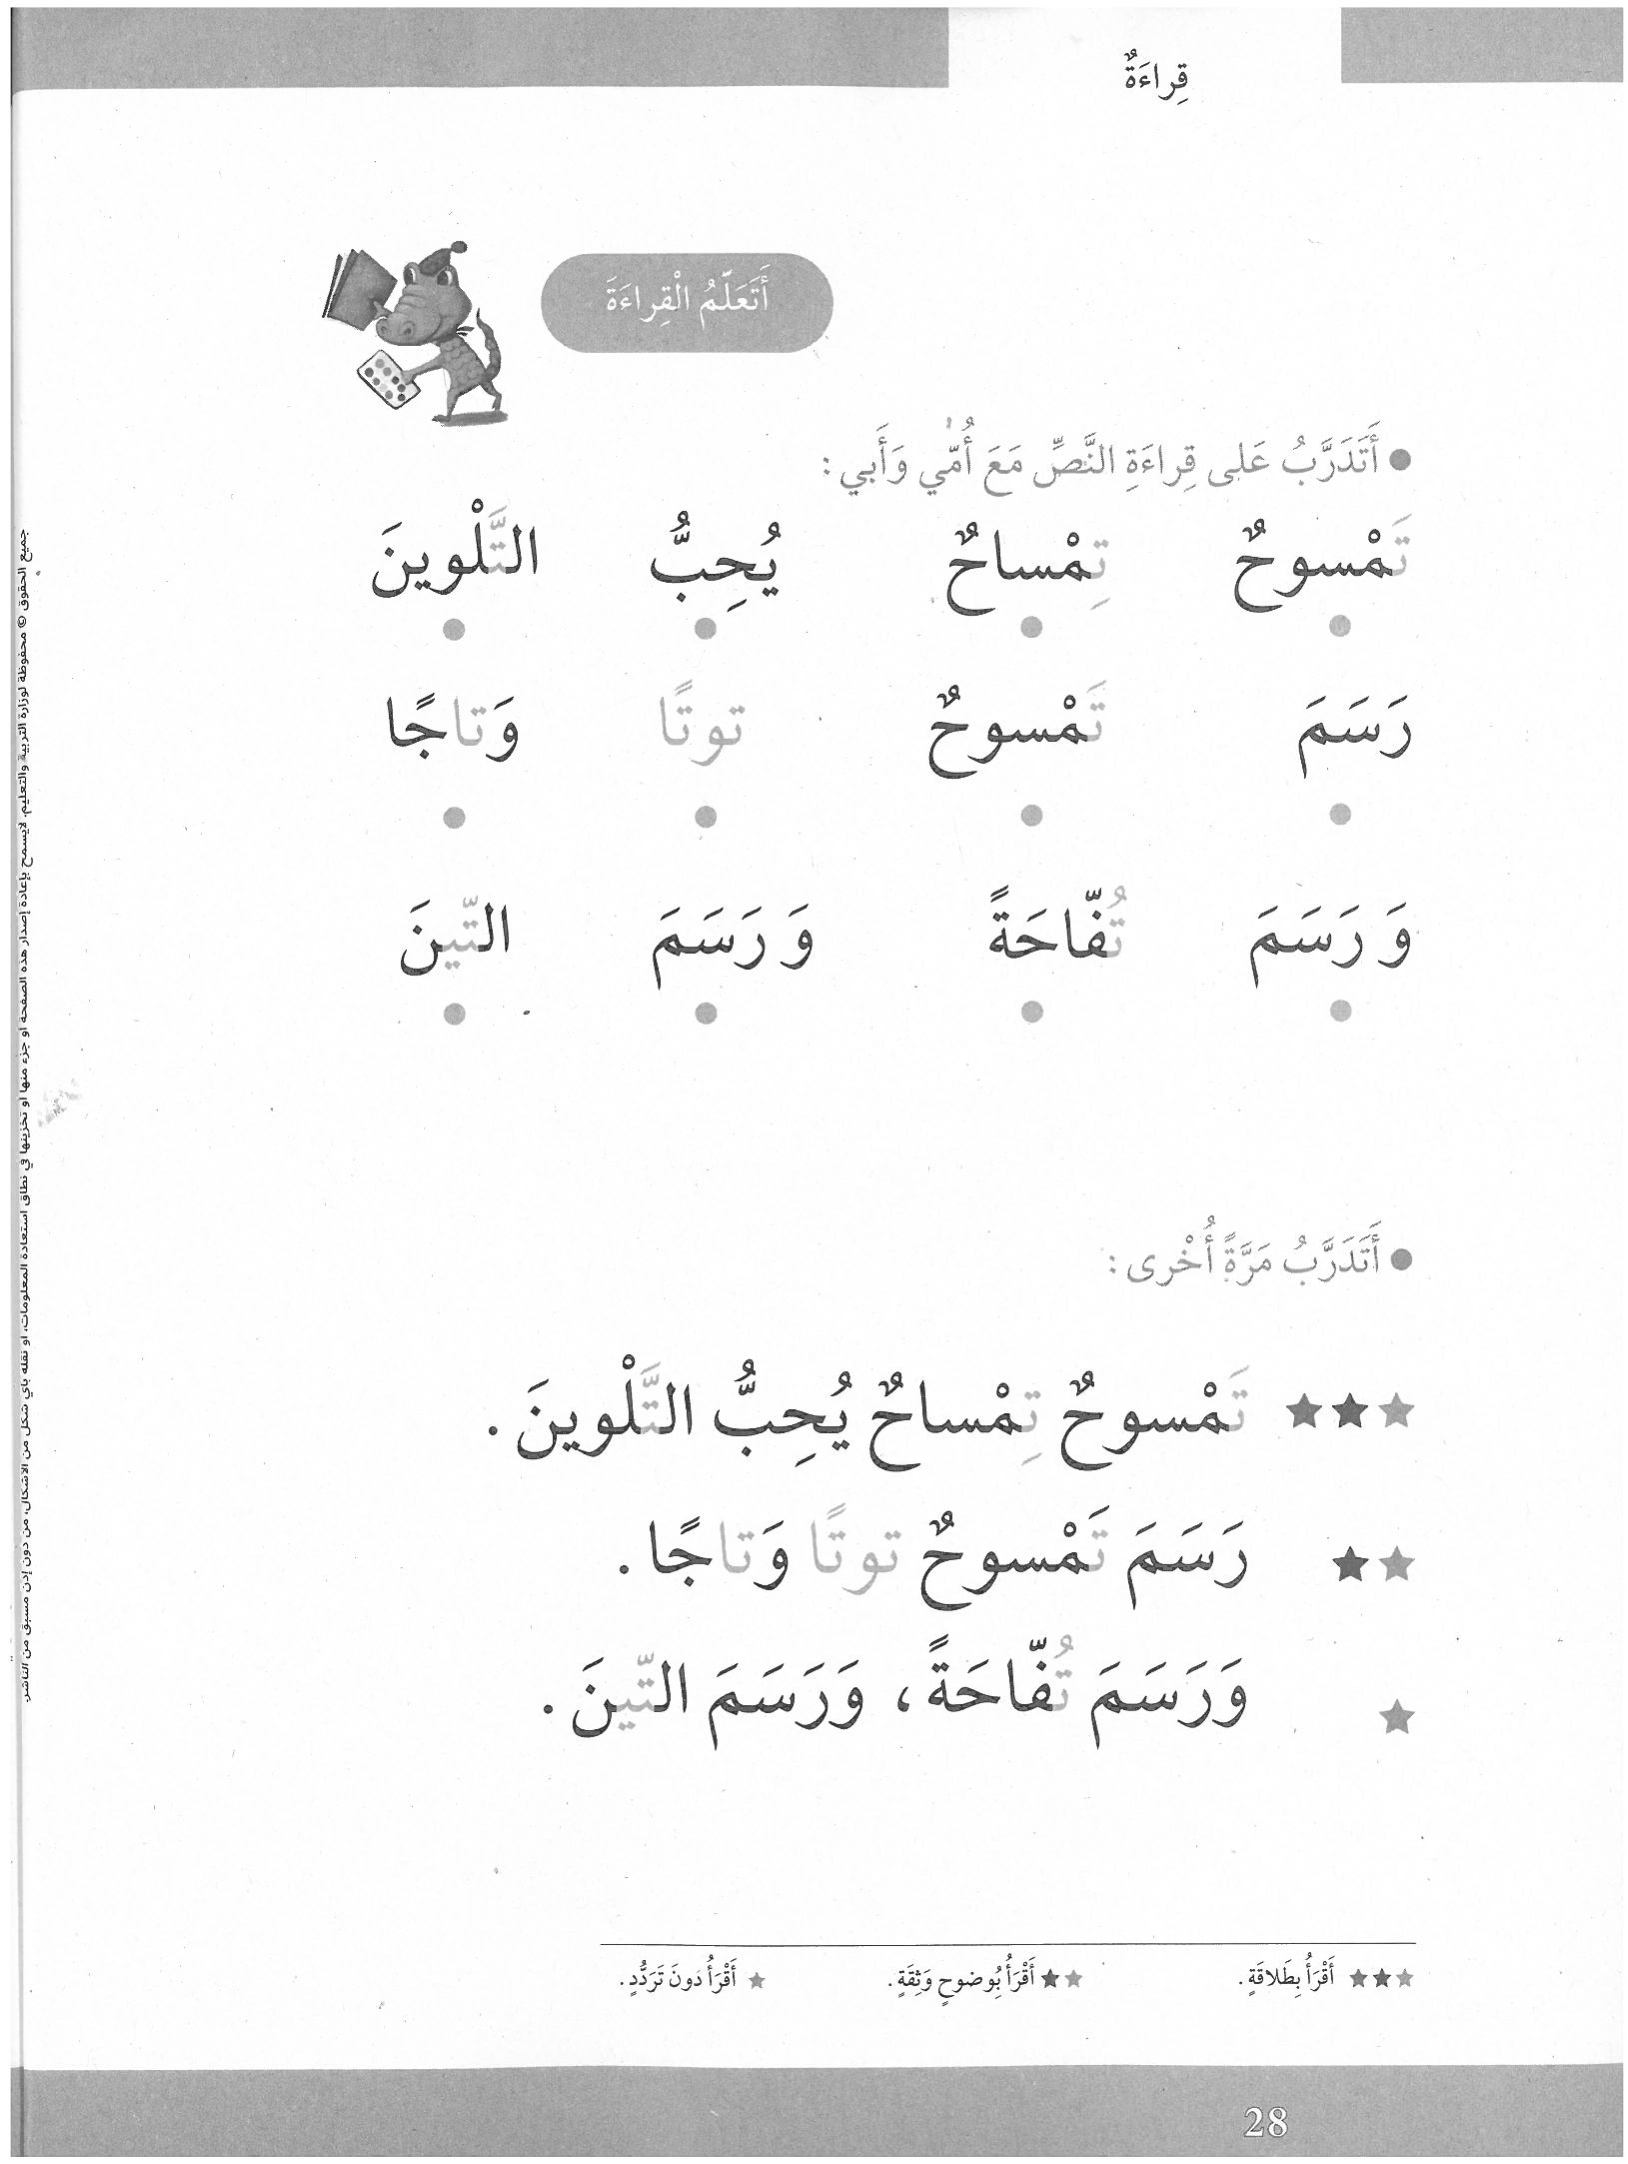 قِراءَةٌ
أَتَعَلَّمُ الْقِراءَةَ
● أَتَدَرَّبُ عَلى قِراءَةِ النَّصِّ مَعَ أُمّي وَأَبي :
تَمْسوحٌ تِمْساحٌ يُحِبُّ التَّلْوينَ
رَسَمَ تَمْسوحٌ توتًا وَتاجًا
وَ رَسَمَ تُفّاحَةً وَ رَسَمَ التّينَ
● أَتَدَرَّبُ مَرَّةً أُخْرى :
★★★ تَمْسوحٌ تِمْساحٌ يُحِبُّ التَّلْوينَ .
★★ رَسَمَ تَمْسوحٌ توتًا وَتاجًا .
★ وَرَسَمَ تُفّاحَةً ، وَرَسَمَ التّينَ .
★★★ أَقْرَأُ بِطَلاقَةٍ . ★★ أَقْرَأُ بِوُضوحٍ وَثِقَةٍ . ★ أَقْرَأُ دونَ تَرَدُّدٍ .
28
جميع الحقوق © محفوظة لوزارة التربية والتعليم. لايسمح بإعادة إصدار هذه الصفحة أو جزء منها أو تخزينها في نطاق استعادة المعلومات، أو نقله بأي شكل من الأشكال، من دون إذن مسبق من الناشر.